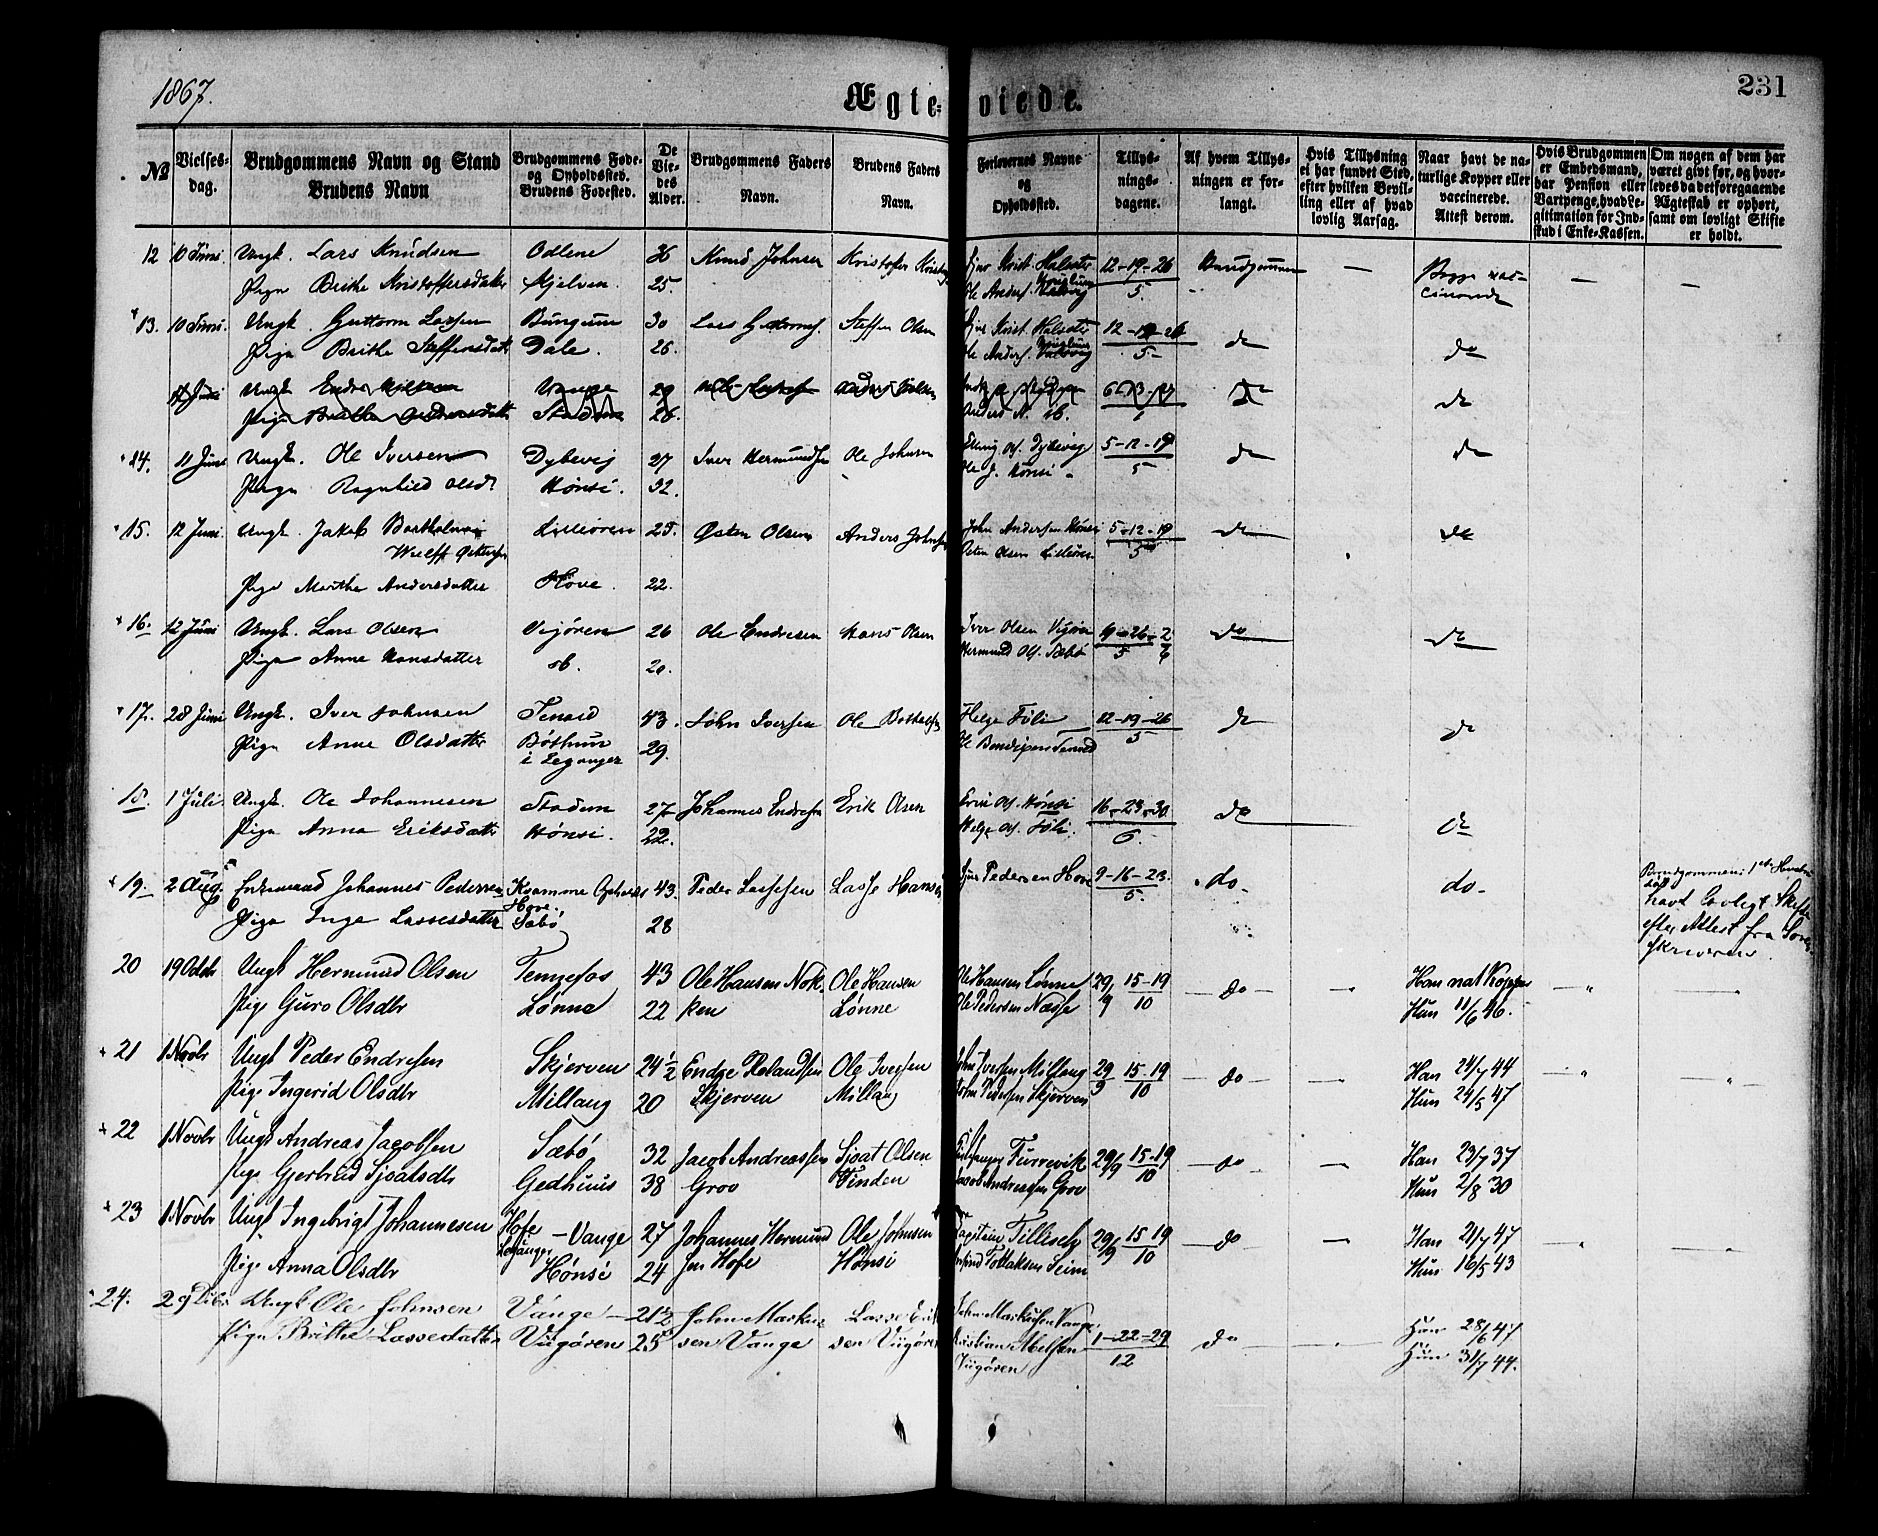 1867.
Ægte- viede.
231
No
Vielses-dag.
Brudgommens Navn og Stand
Brudens Navn
Brudgommens Føde- og Opholdssted.
Brudens Fødested.
De Vie-des Alder.
Brudgommens Faders Navn.
Brudens Faders Navn.
Forlovernes Navne og Opholdssted.
Tillys-nings-dagene.
Af hvem Tillys-ningen er for-langt.
Hvis Tillysning ei har fundet Sted, efter hvilken Bevil-ling eller af hvad lovlig Aarsag.
Naar havt de na-turlige Kopper eller vaccinerede. Attest derom.
Hvis Brudgommen er Embedsmand, har Pension eller Vartpenge, hvad Le-gitimation for Ind-skud i Enke-Kassen.
Om nogen af dem har været givt før, og hvor-ledes da det foregaaende Ægteskab er ophørt, samt om lovligt Skifte er holdt.
12 10 Juni Ungk. Lars Knudsen Odlene 36 Knud Johnsen 12-19-26 Brudgommen
Pige Brithe Kristoffersdatter Kjelven 25. 5.
13. 10 Juni. Ungk. Guttorm Larsen Bungum 30 Steffen Olsen 12-19-26 do do
Pige Brithe Steffensdatt Dale. 26. 5
11 Juni Ungk. Endre Vange 29 do do
Pige Brithe Andersdatt Stadem 26.
14. 11 Juni Ungk. Ole Iversen Dybevig 27 Iver Hermundsen Ole Johnsen 5-12-19 do do
Pige Ragnhild Olsdt Hønsi. 32. Ole J. Hønsi 5
15. 12 Juni. Ungk. Jakob Bartholmæi Lilleøren 25. Østen Olsen Anders Johnsen John Andersen Hønsi 5-12-19 do do
Wulff Østensen Østen Olsen Lilleøren 5
Pige Marthe Andersdatter Hove. 22.
16. 12 Juni Ungk. Lars Olsen Vigøren 26 Ole Endresen Hans Olsen Iver Olsen Vigøren 19-26-2 do do
Pige Anne Hansdatter sb. 20. Hermund Ols. Sæbø 5 6
17. 28 Juni Ungk. Iver Johnsen 43. John Iversen Helge Føli 12-19-26 do do
Pige Anne Olsdatter Bøthun i Leganger 29. 5
18. 1 Juli. Ungk. Ole Johannesen Stadem 27 Johannes Endresen Erik Olsen Erik Ols. Hønsi 16-23-30 do do
Pige Anna Eriksdatter Hønsi. 22. Helge Ols. Føli. 6.
19. 2 Aug. Enkemand Johannes Pedersen Kvamme Opholds Hove. 43. Peder Lassesen Lasse Hansen Pedersen Hove 9-16-23. do- do- Brudgommens 1ste Hustru
Pige Inge Lassesdatter Sæbø 28 5. havt Lovligt Skifte
efter Attest fra Soren-
skriveren
20 19 Octbr Ungk Hermund Olsen Tenzefos 43 Ole Hansen Nok- Ole Hansen Ole Hansen Lønne 29/9 15-19 do Han nat Kopper
Pige Guro Olsdtr Lønne 22 ken Lønne Ole Pedersen Næsse 10 Hun 11/6 46.
21 1 Novbr Ungk Peder Endresen Skjerven 24 1/2 Endre Rolandsen Ole Iversen John Iversen Millang 29/9 15-19 do Han 24/7 44
Pige Ingerid Olsdtr Millang 20 Skjerven Millang Pedersen Skjerven 10 Hun 24/5 47
22 1 Novbr Ungk Andreas Jacobsen Sæbø 32 Jacob Andreassen Sjoat Olsen Furrevik 29/9 15-19 do Han 23/7 37
Pige Gjertrud Sjoatsdtr Gedhuus 38 Grov Finden Jacob Andreassen Grov 10 Hun 2/8 30
23 1 Novbr Ungk Ingebrigt Johannesen Hofe Leganger - Vange 27 Johannes Hermund Ole Johnsen Capitein Tillisch 29/9 15-19 do Han 21/7 47
Pige Anna Olsdtr Hønsi 24 sen Hofe Hønsi Seim 10 Hun 16/5 43
24. 29 Dcbr Ungk Ole Johnsen Vange 21 1/2 John Marku- Lasse Erik John Markusen Vange. do Han 28/6 47
Pige Brithe Lassedatter Viigøren 25 sen Vange sen Viigøren Kristian Abelsen 1-22-29 Hun 31/7 44.
Viigøren 12